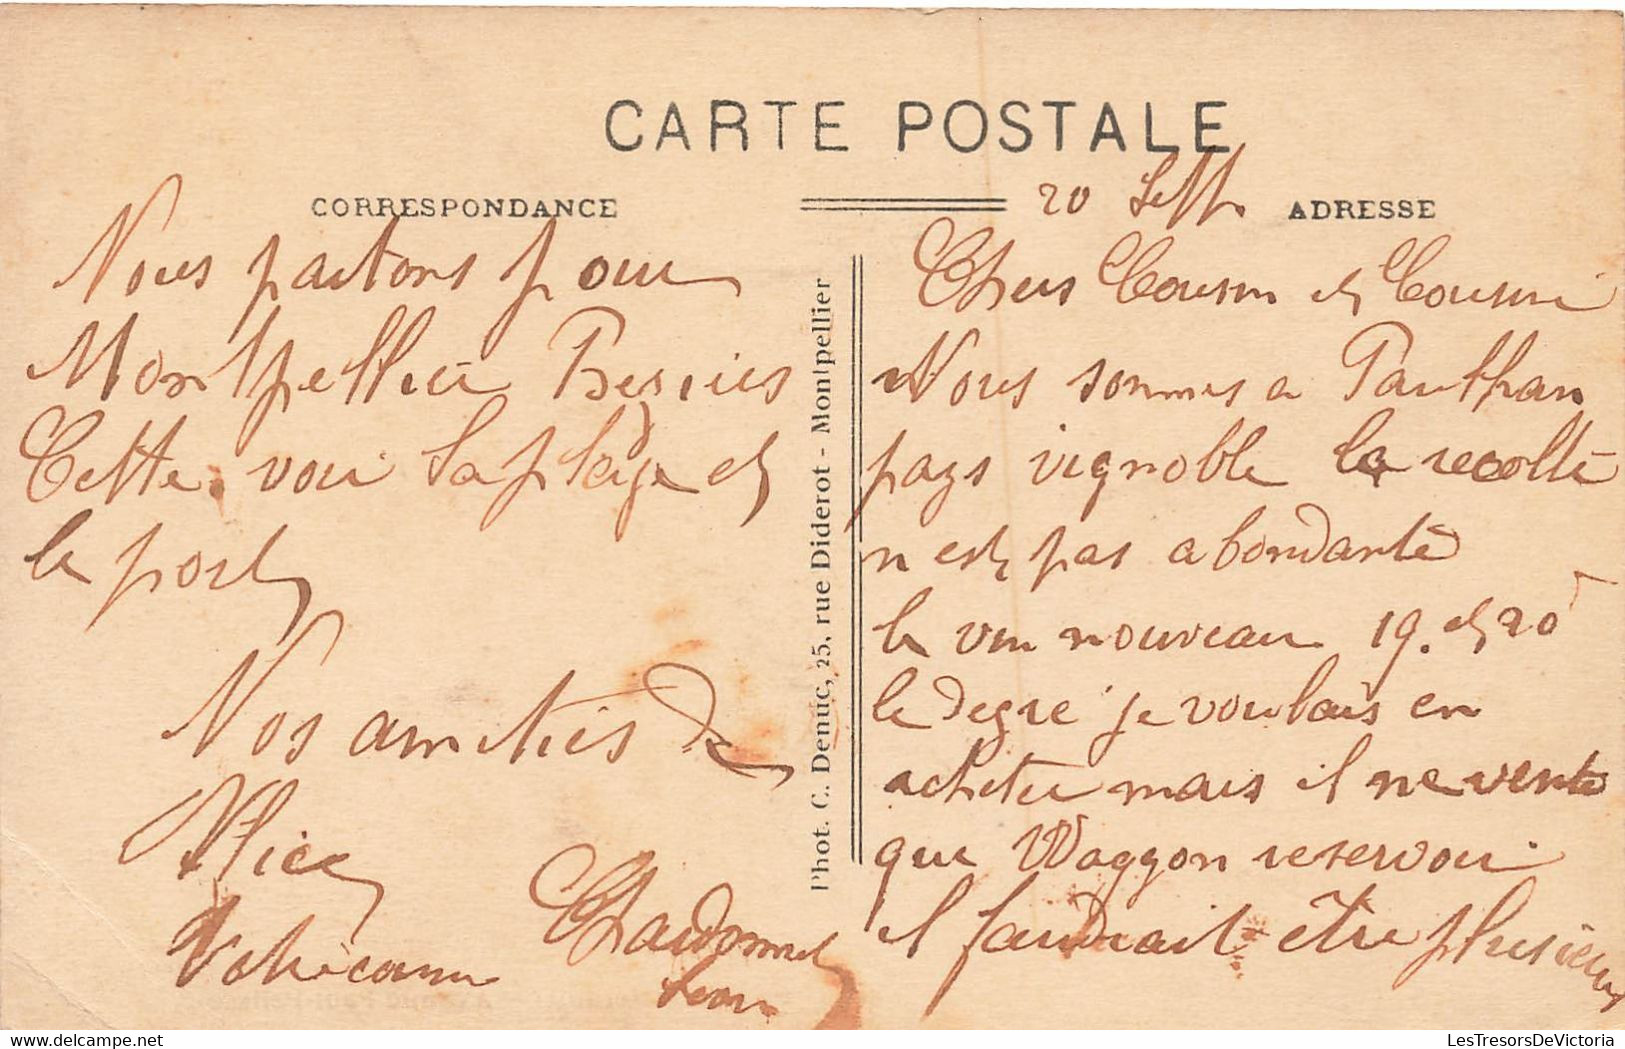 CARTE POSTALE
CORRESPONDANCE
ADRESSE
20 Sept
Chers Cousin et Cousine
Nous sommes a Paulhan
pays vignoble la recolte
n est pas abondante
le vin nouveau 19. et 20
le degre je voulais en
acheter mais il ne vente
que Waggon reservoir
il faudrait être plusieurs
Nous partons pour
Montpellier Besiers
Cette voir la plage et
le port
Nos amities de
Alice
Chardonnet
Jean
Phot. C. Denuc, 25, rue Diderot - Montpellier
LesTresorsDeVictoria
www.delcampe.net